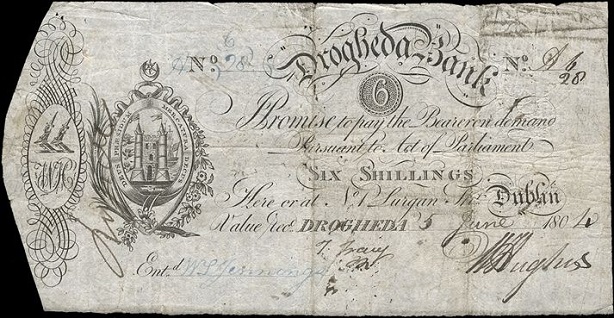 Drogheda Bank
No. 6/28
No. A 6/28
6
I Promise to pay the Bearer on demand
Pursuant to Act of Parliament
SIX SHILLINGS
Here or at No. 1 Lurgan Str. Dublin
Value recd. DROGHEDA 5 June 1804
Entd.
WH
DEUS PRAESIDIUM MERCATURA DECUS